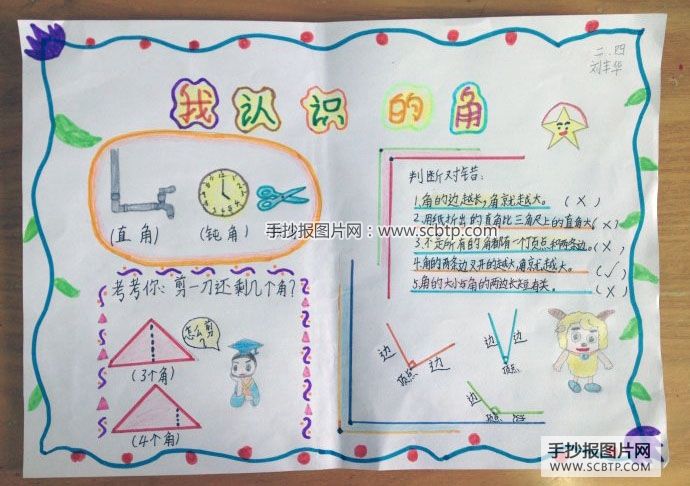 二.四
刘丰华
我认识的角
(直角)
(钝角)
考考你:剪一刀还剩几个角?
怎么剪?
(3个角)
(4个角)
判断对错:
1.角的边越长,角就越大。(×)
2.用纸折出的直角比三角尺上的直角大。(×)
3.不是所有的角都有一个顶点和两条边。(×)
4.角的两条边叉开的越大,角就越大。(✓)
5.角的大小与角的两边长短有关。(×)
边
顶点
边
边
边
顶点
边
顶点
手抄报图片网:www.scbtp.com
手抄报图片网
WWW.SCBTP.COM